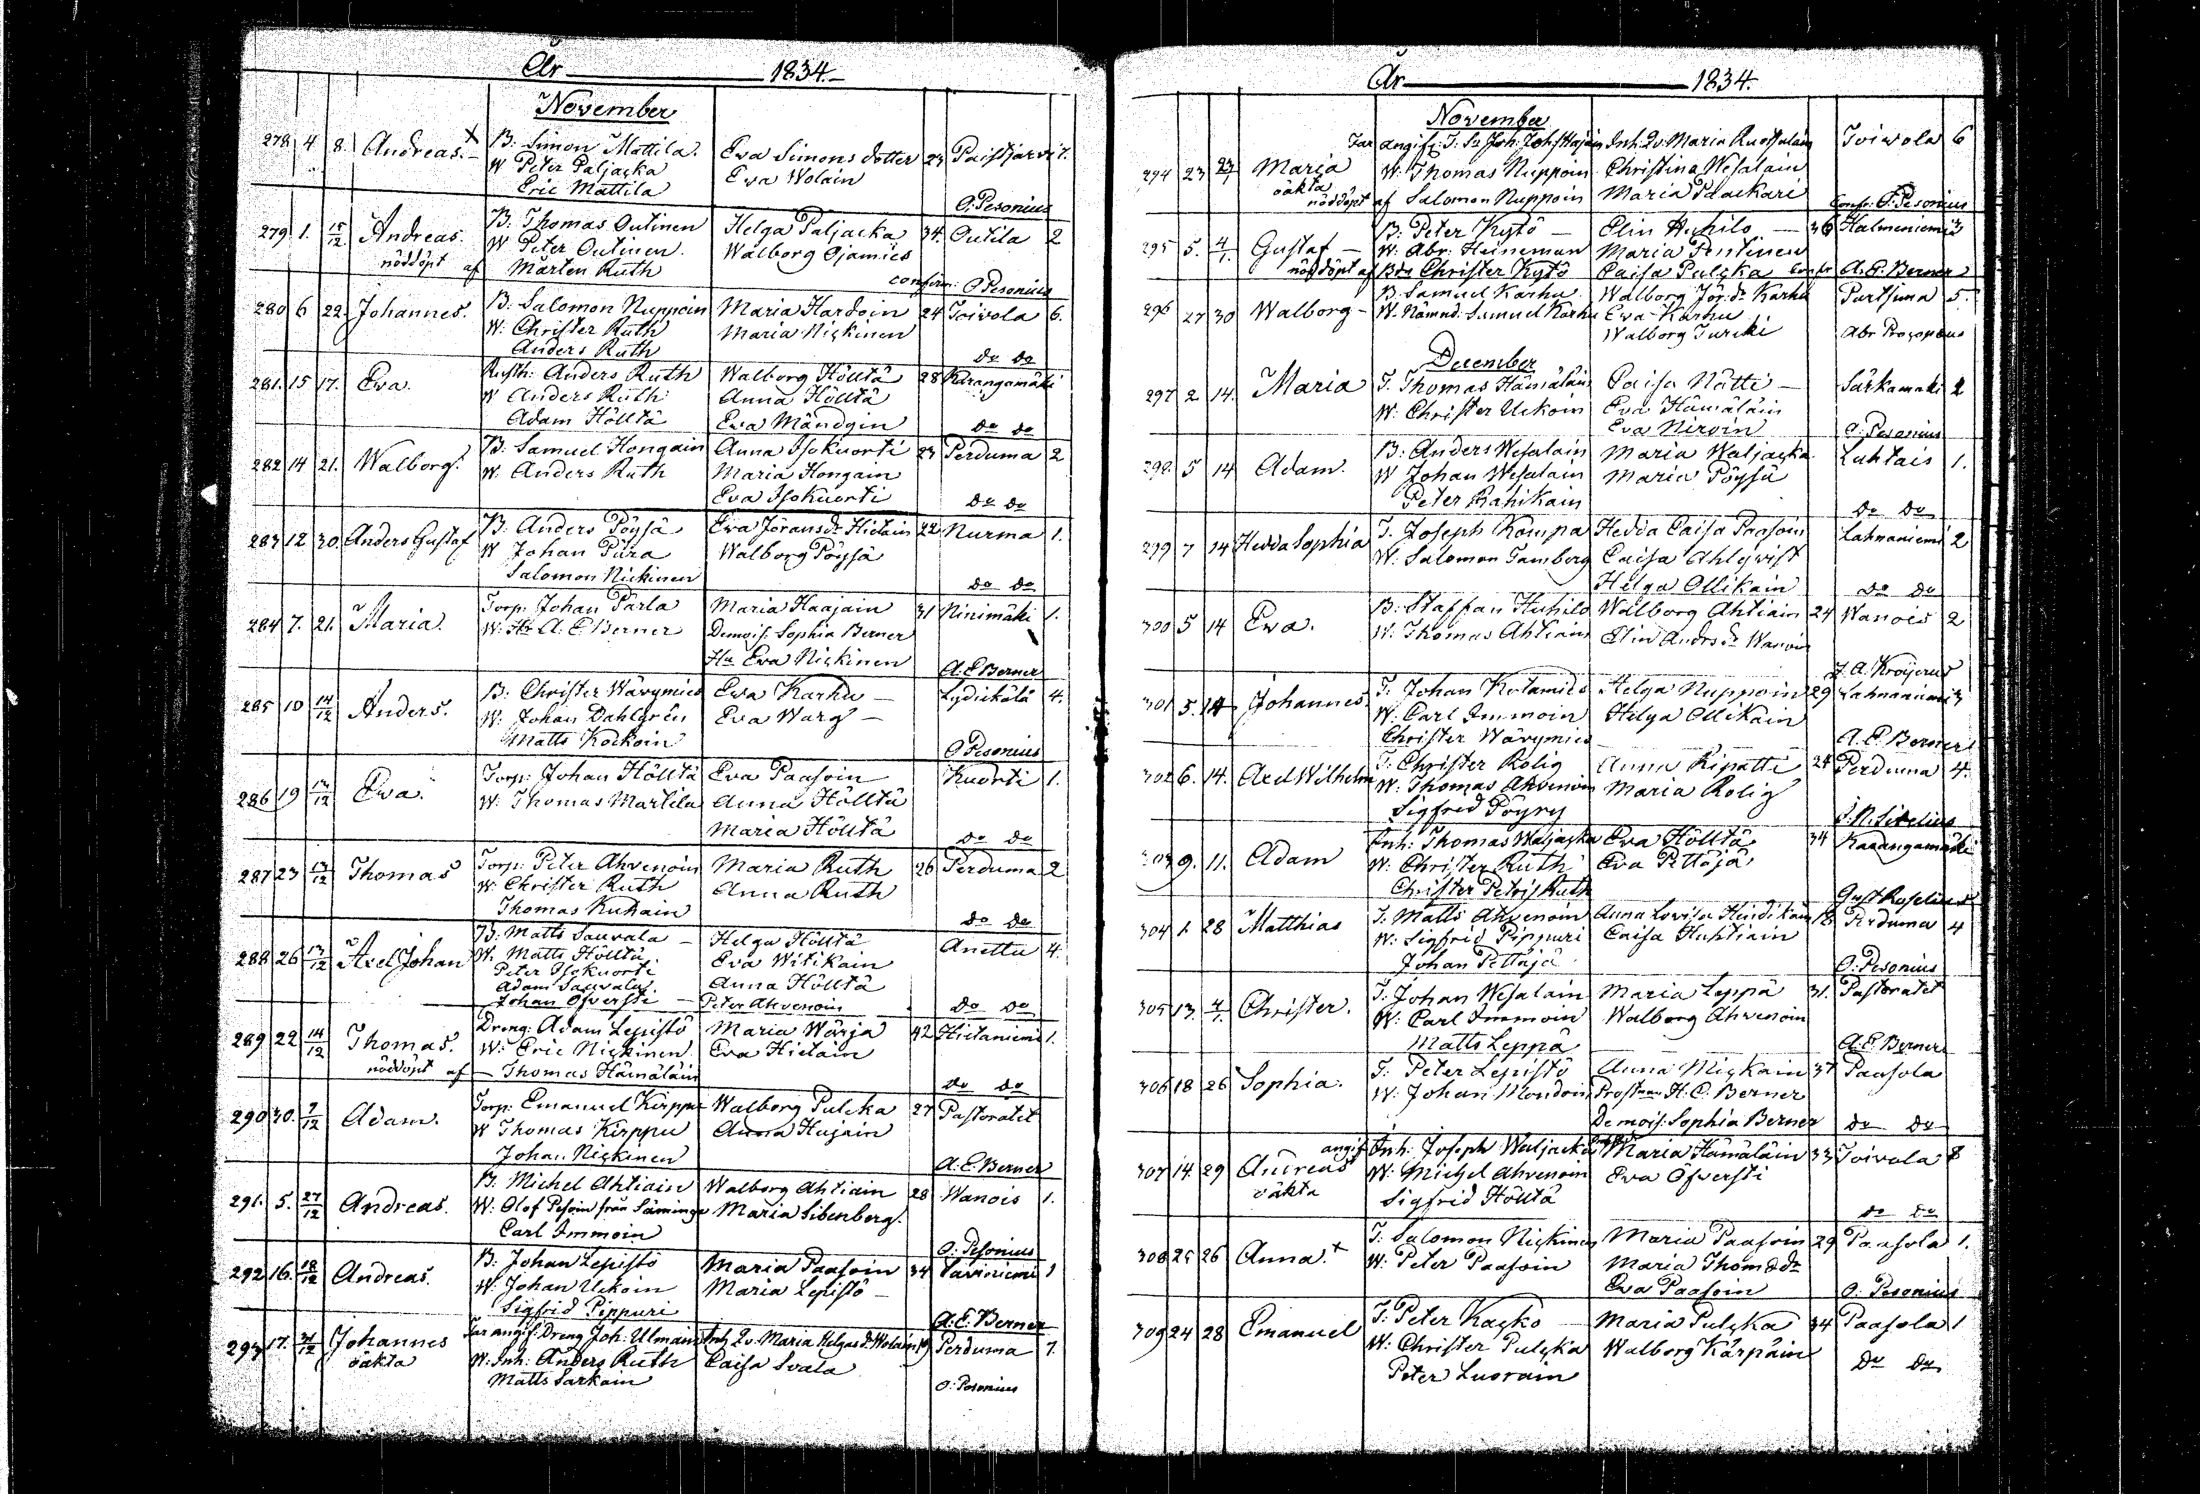 År 1834.
November
278 4 8. Andreas. B: Simon Mattila. Eva Simons dotter 23 Paistjärvi 7.
W Peter Paljacka Eva Wolain
Eric Mattila
O: Pesonius
279 1. 15/12 Andreas. B: Thomas Outinen Helga Paljacka 34. Outila 2
W Peter Outinen. Walborg Ojamies
nöddöpt af Mårten Ruth
confirm: O Pesonius
280 6 22. Johannes. B: Salomon Nuppoin Maria Hardoin 24 Toivola 6.
W: Christer Ruth Maria Nickinen
Anders Ruth
Do Do
281. 15 17. Eva. Rusth: Anders Ruth Walborg Hölltä 28 Karangamäki
W Anders Ruth Anna Hölltä
Adam Hölltä Eva Mändyin
Do Do
282 14 21. Walborg. B: Samuel Hongain Anna Isokuorti 23 Perduma 2
W. Anders Ruth Maria Hongain
Eva Isokuorti
Do Do
283 12 30. Anders Gustaf B: Anders Pöysä Eva Jöransdr Hietain 22 Nurma 1.
W Johan Pära Walborg Pöysä
Salomon Nickinen
Do Do
284 7. 21. Maria. Torp: Johan Pärla Maria Haajain 31 Ninimäki 1.
W: Hr A. E. Berner Demois. Sophia Berner
Hu Eva Nickinen
A. E Berner
285 10 14/12 Anders. B: Christer Wärymies Eva Karhu Lydikälä 4.
W. Johan Dahlgrén Eva Warg
Matts Kockoin
O Pesonius
286 19 13/12 Eva. Torp: Johan Hölltä Eva Paasoin Kuorti 1.
W: Thomas Martila Anna Hölltä
Maria Hölltä
Do Do
287 23 13/12 Thomas Torp: Peter Ahvenoin Maria Ruth 26 Perduma 2
W: Christer Ruth Anna Ruth
Thomas Kukain
Do Do
288 26 13/12 Axel Johan B: Matts Sauvala Helga Hölltä Anettu 4.
W. Matts Hölltä Eva Witikain
Peter Isokuorti Anna Hölltä
Adam Sauvala.
Johan Öfversti Peter Ahvenoin Do Do
289 22 14/12 Thomas. Dreng: Adam Lepistö Maria Wärja 42 Hietaniemi 1.
W: Eric Nickinen. Eva Hietain
nöddöpt af Thomas Hämäläin
Do Do
290 30. 7/12 Adam. Torp: Emanuel Kirppu Walborg Pulcka 27 Pastoratet
W Thomas Kirppu Anna Hujain
Johan Nickinen
A. E. Berner
291. 5. 27/12 Andreas. B. Michel Ahtiain Walborg Ahtiain 28 Wanois 1.
W: Olof Pesoin från Säminge Maria Sibenberg.
Carl Immoin
O: Pesonius
292 16. 18/12 Andreas. B: Johan Lepistö Maria Paasoin 34 Saviniemi 1
W: Johan Uckoin Maria Lepistö
Sigfrid Pippuri
A: E: Berner
293 17. 31/12 Johannes Far angif: Dreng Joh: Ulmain Inh Qv. Maria Helgasdr Wolain 19 Perduma 7.
oäkta W: Inh: Anders Ruth Caisa Svala
Matts Sarkain
O: Pesonius
År 1834.
November
Far angif: T. Sn Joh: Johs Hajain Inh: Qv: Maria Ruotsalain Toivola 6
294 23 Maria W: Thomas Nuppoin Christina Wesalain
oäkta
nöddöpt af Salomon Nuppoin Maria Paackari Confir: O. Pesonius
295 5. 4/1. Gustaf B: Peter Kytö Elin Huhilo 36 Halmeniemi 3
W: Abr: Heineman Maria Pentinen
nöddöpt af Christer Kytö Caisa Pulcka Confr A. E. Berner
296 27 30 Walborg B: Samuel Karhu Walborg Jör. dr Karhu Purtsima 5.
W. Nämnd: Samuel Karhu Eva Karhu
Walborg Turcki Abr Procopæus
December
297 2 14. Maria T. Thomas Hämäläin Caisa Nätti Särkamäki 2
W: Christer Uckoin Eva Hämäläin
Eva Nirvin O: Pesonius
298. 5 14 Adam. B: Anders Wesalain Maria Waljacka Luhtais 1.
W Johan Wesalain Maria Pöysä
Peter Rahikain
Do Do
299 7 14 Hedda Sophia T. Joseph Kompa Hedda Caisa Paasoin Lahnaniemi 2
W. Salomon Tamberg Caisa Ahlqvist
Helga Ollikain Do Do
300 5 14 Eva. B: Staffan Huhilo Walborg Ahtiain 24 Wanois 2
W. Thomas Ahtiain Elin Andrs dr Wanoin
J. A. Kröijerus
301 5. 14 Johannes. T: Johan Kolamies Helga Nuppoin 29 Lahnaniemi 3
W: Carl Immoin Helga Ollikain
Christer Wärymies A. E. Berner
302 6. 14. Axel Wilhelm T: Christer Rolig Anna Ripatti 24 Perduma 4.
W: Thomas Ahvenoin Maria Rolig
Sigfred Pöyry
J. N. Sitelius
303 9. 11. Adam Inh: Thomas Waljacka Eva Hölltä 34 Karangamäki
W: Christer Ruth Eva Pettäjä
Christer Petris Ruth Gust Roselius
304 1. 28 Matthias T: Matts Ahvenoin Anna Lovisa Heidikain 18 Perduma 4
W: Sigfrid Pippuri Caisa Huhtiain
Johan Pettäjä O: Pesonius
305 13. 4/1. Christer. T: Johan Wesalain Maria Leppä 31. Pastoratet
W: Carl Immoin Walborg Ahvenoin
Matts Leppä A: E: Berner
306 18 26 Sophia. T: Peter Lepistö Anna Mickain 37 Paasola
W: Johan Mondoin Prostinan H. C. Berner
Demois: Sophia Berner Do Do
307 14. 29 Andreas angif. Inh: Joseph Waljacka Maria Hämäläin 33 Toivola 8
oäkta W: Michel Ahvenoin Eva Öfversti
Sigfrid Hölltä
Do Do
308 25 26 Anna. T: Salomon Nickinen Maria Paasoin 29 Paasola 1.
W. Peter Paasoin Maria Thom dr
Eva Paasoin O: Pesonius
309 24 28 Emanuel T: Peter Kacko Maria Pulcka 34 Paasola 1
W: Christer Pulcka Walborg Kärpäin
Peter Luorain Do Do